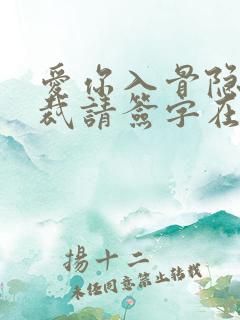 愛你入骨隐
裁請簽字在
揚十二
未經同意禁止转载